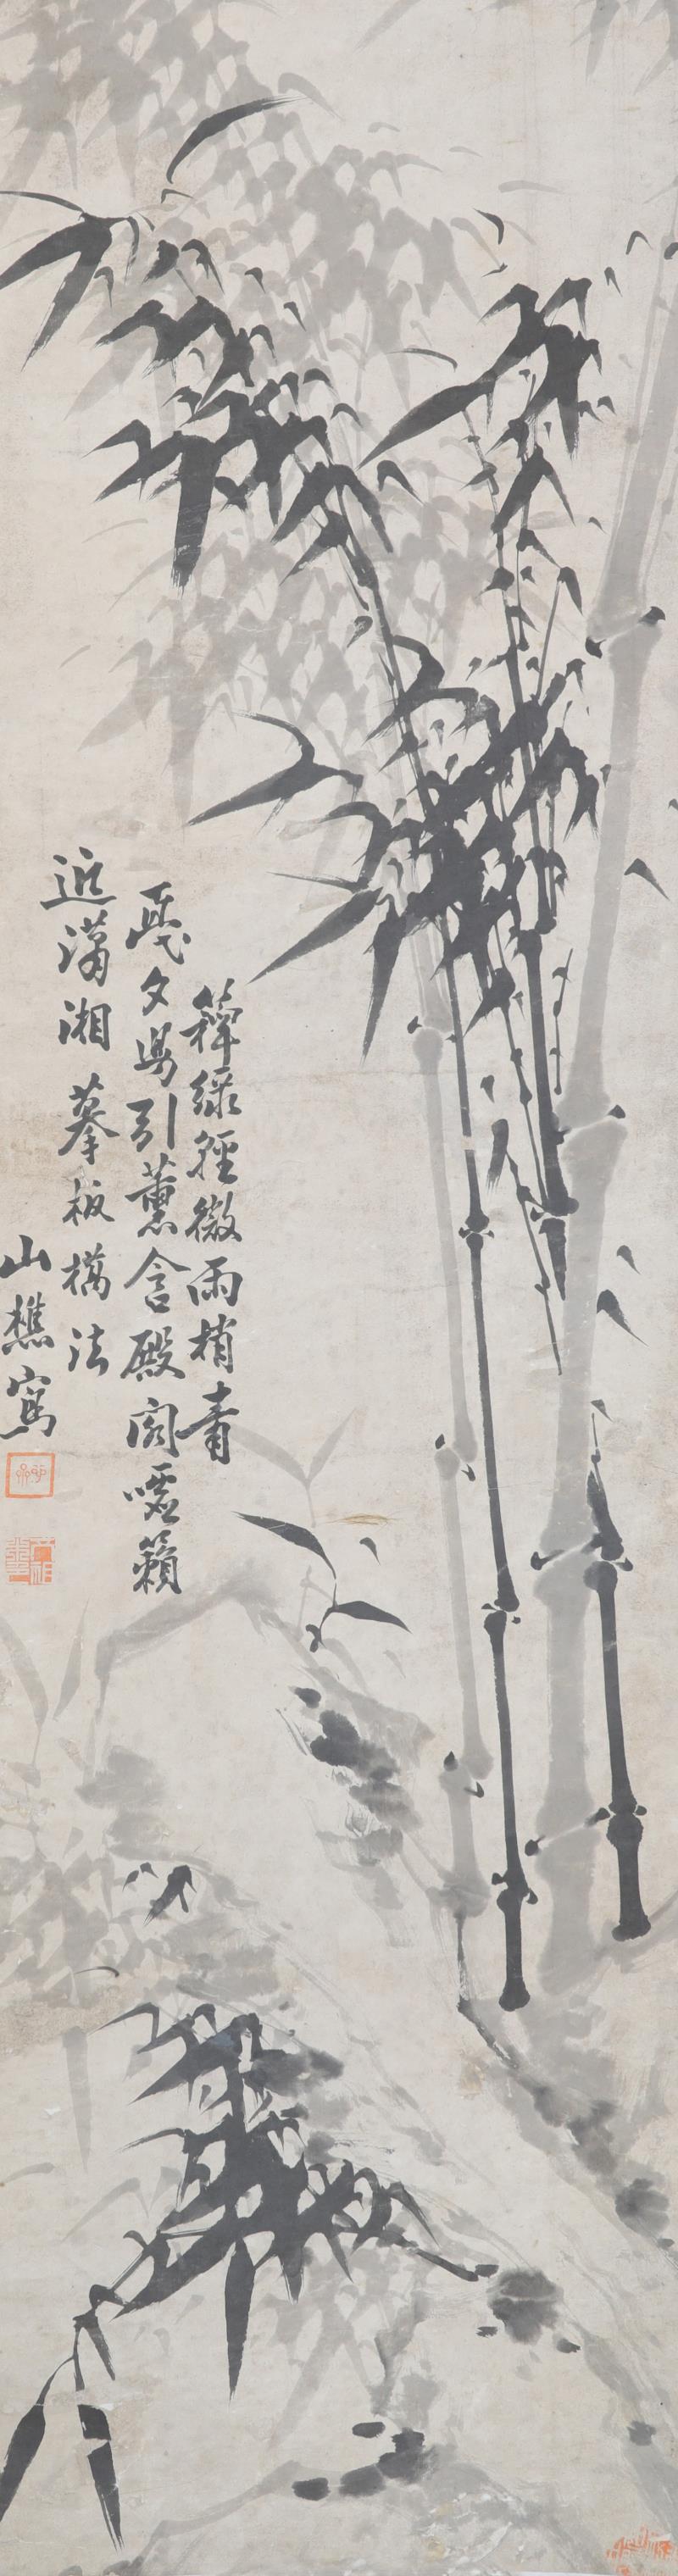 籜綠經微雨梢青
戛夕陽引薰含殿閣噓籟
近瀟湘摹板橋法
山樵寫